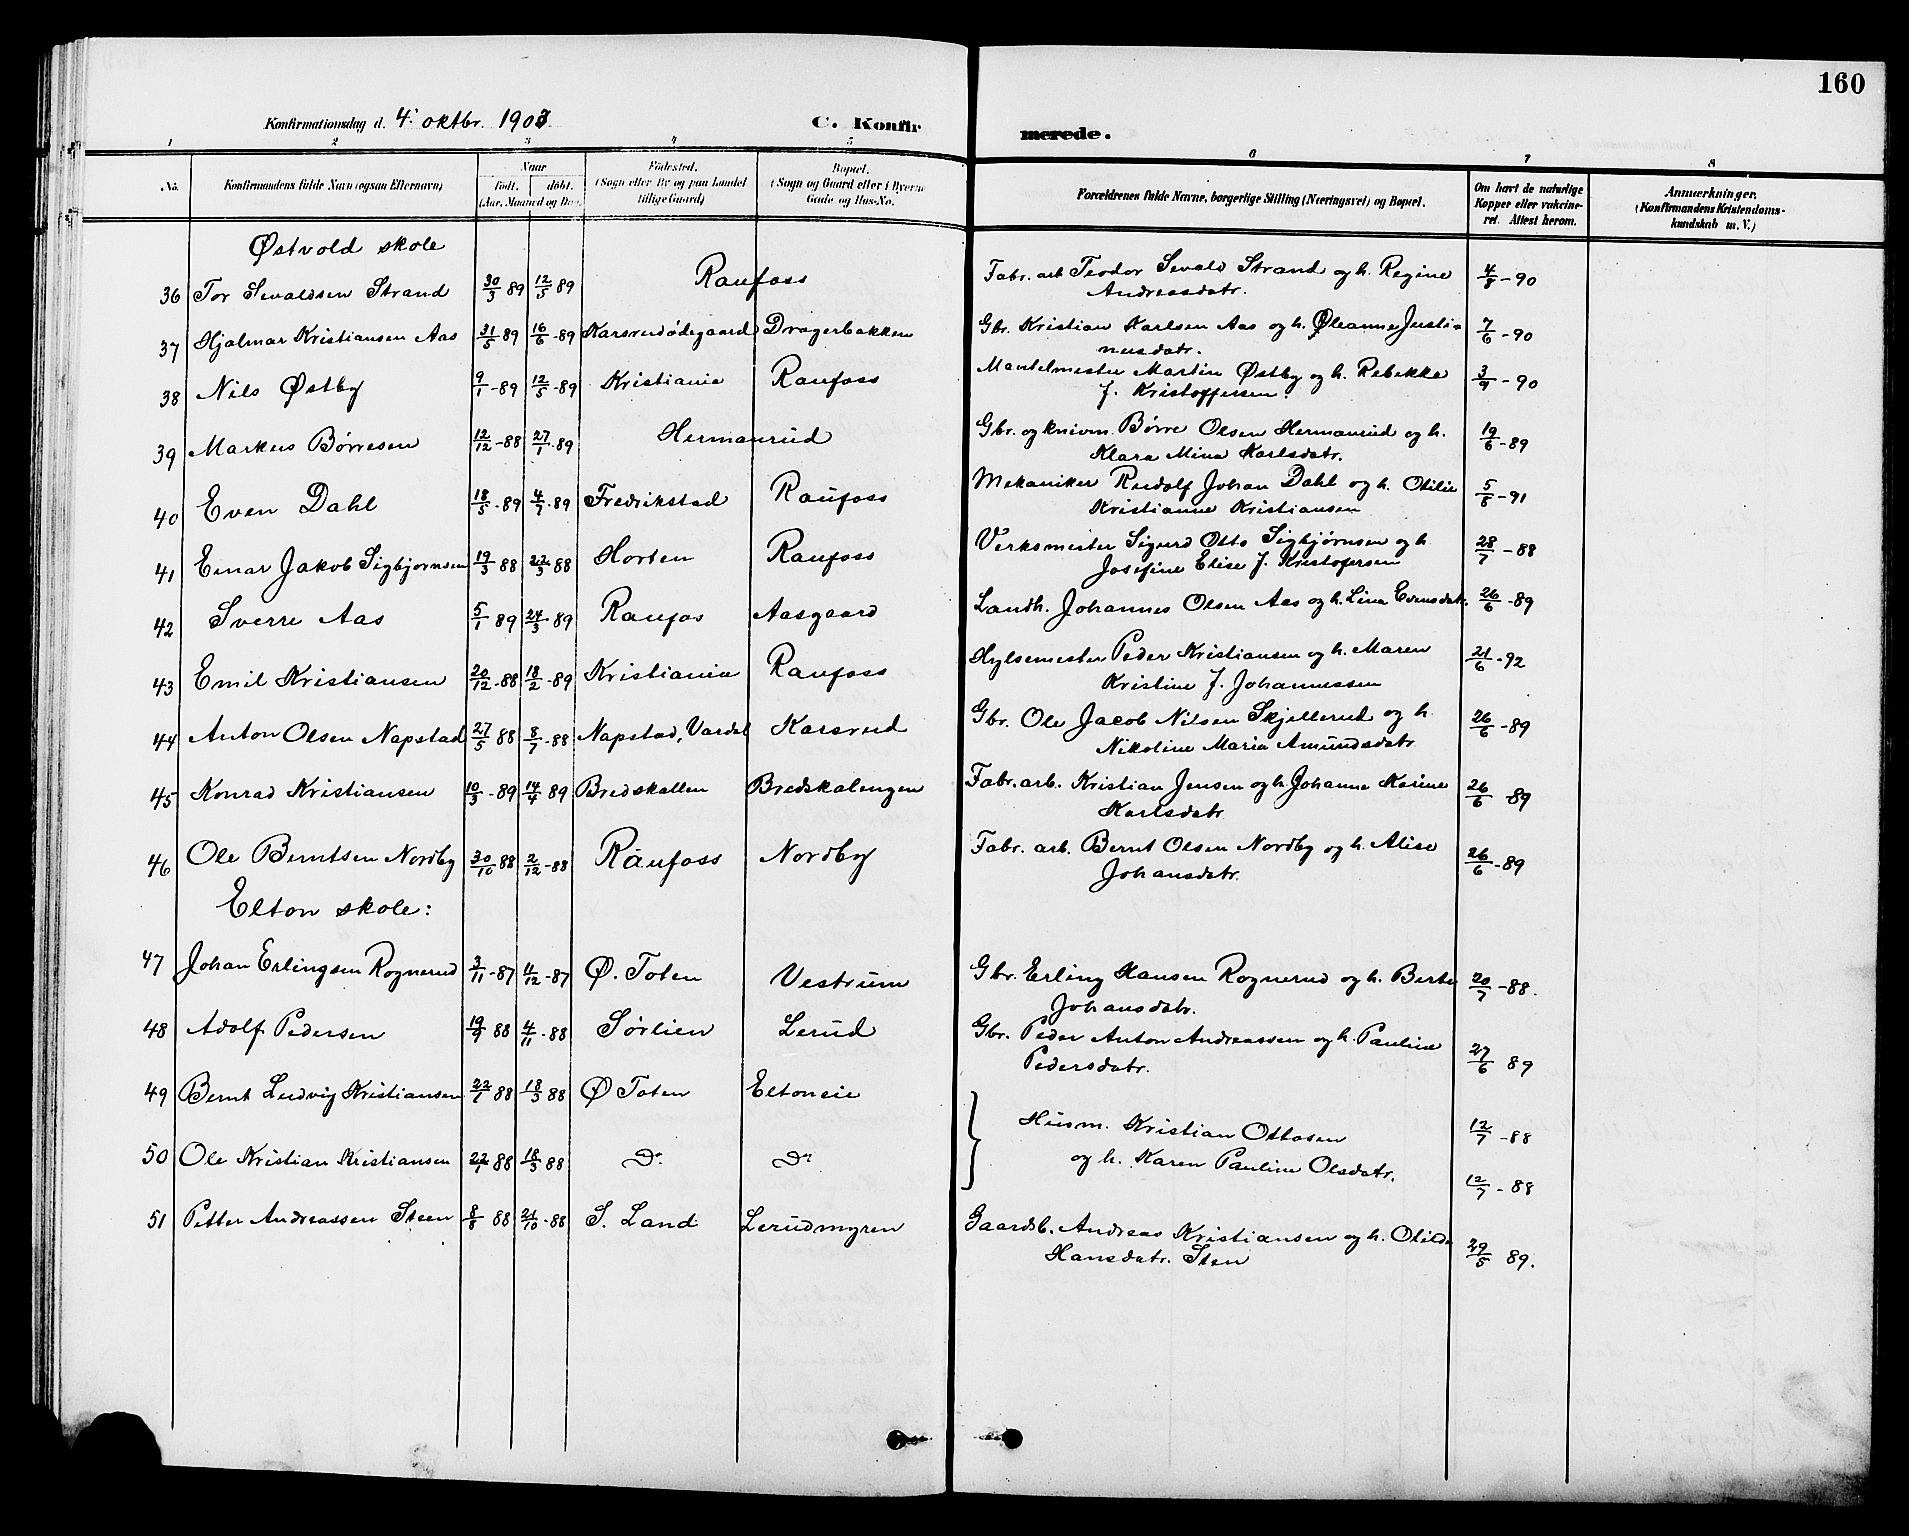 160
Konfirmationsdag d. 4. oktbr. 1903. C. Konfirmerede.
1 2 3 4 5 6 7 8
No. Konfirmandens fulde Navn (ogsaa Efternavn) Naar født. døbt. (Aar, Maaned og Dag) Fødested. (Sogn eller By og paa Landet tillige Gaard) Bopæl. (Sogn og Gaard eller i Byerne Gade og Hus-No. Forældrenes fulde Navne, borgerlige Stilling (Næringsvei) og Bopæl. Om havt de naturlige Kopper eller vakcineret. Attest herom. Anmærkninger. (Konfirmandens Kristendomskundskab m. V.)
Østvold skole
36 Tor Sevaldsen Strand 30/3 89 12/5 89 Raufoss Fabr. arb Teodor Sevald Strand og h. Regine 4/8 - 90
Andreasdatr.
37 Hjalmar Kristiansen Aas 31/5 89 16/6 - 89 Karsrudødegaard Dragerbakken Gbr. Kristian Karlsen Aas og h. Oleanne Justi- 7/6 - 90
nusdatr.
38 Nils Østby 9/1 - 89 12/5 - 89 Kristiania Raufoss Mantelmester Martin Østby og h. Rebekke 3/9 - 90
f. Kristoffersen
39 Markus Børresen 12/12 - 88 27/1 - 89 Hermanrud Gbr. og knivm. Børre Olsen Hermanrud og h. 19/6 - 89
Klara Mina Karlsdatr.
40 Even Dahl 18/5 - 89 4/7 - 89 Fredrikstad Raufoss Mekaniker Rudolf Johan Dahl og h. Otilie 5/8 - 91
Kristianne Kristiansen
41 Einar Jakob Sigbjørnsen 19/3 88 22/3 88 Horten Raufoss Verksmester Sigurd Otto Sigbjørnsen og h 28/7 - 88
Josefine Elise f. Kristofersen
42 Sverre Aas 5/1 89 24/3 89 Raufos Aasgaard Landh. Johannes Olsen Aas og h. Lina Evensdatr. 26/6 - 89
43 Emil Kristiansen 20/12 - 88 18/2 - 89 Kristiania Raufoss Hylsemester Peder Kristiansen og h. Maren 21/6 - 92
Kristine f. Johannessen
44 Anton Olsen Napstad 27/5 88 8/7 - 88 Napstad, Vardal Karsrud Gbr. Ole Jacob Nilsen Skjellerud og h. 26/6 - 89
Nikoline Maria Amundsdatr
45 Konrad Kristiansen 10/3 - 89 14/4 89 Bredskallen Bredskalengen Fabr. arb. Kristian Jensen og h. Johanne Karine 26/6 89
Karlsdatr
46 Ole Berntsen Nordby 30/10 88 2/12 - 88 Raufoss Nordby Fabr. arb. Bernt Olsen Nordby og h. Alise 26/6 - 89
Johansdatr.
Elton skole:
47 Johan Erlingsen Rognerud 3/11 - 87 11/12 - 87 Ø. Toten Vestrum Gbr. Erling Hansen Rognerud og h. Berte 20/7 - 88.
Johansdatr.
48 Adolf Pedersen 19/9 88 4/11 - 88 Sørlien Lerud Gbr. Peder Anton Andreassen og h. Pauline 27/6 89
Pedersdatr.
49 Bernt Ludvig Kristiansen 22/1 88 18/3 88 Ø Toten Eltoneie Husm. Kristian Ottosen 12/7 - 88
50 Ole Kristian Kristiansen 22/1 88 18/3 88 Do. Do og h. Karen Pauline Olsdatr. 12/7 - 88
51 Petter Andreassen Steen 8/8 88 21/10 - 88 S. Land Lerudmyren Gaardsb. Andreas Kristiansen og h. Otilde 29/5 89.
Hansdatr. Sten